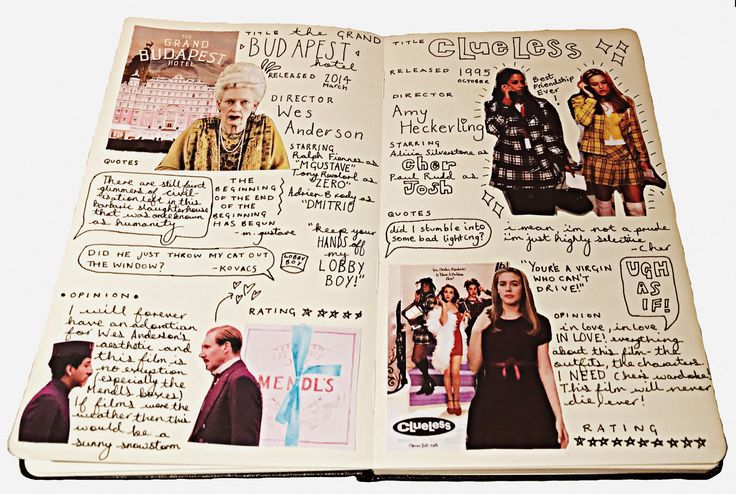 THE
GRAND
BUDAPEST
HOTEL
TITLE the GRAND
BUDAPEST
hotel
RELEASED 2014
March
DIRECTOR
Wes
Anderson
STARRING
Ralph Fiennes as
"M.GUSTAVE"
Tony Revolori as
"ZERO"
Adrien Brody as
"DMITRI"
QUOTES
There are still faint
glimmers of civil-
isation left in this
barbaric slaughterhouse
that was once known
as humanity
THE
BEGINNING
OF THE END
OF THE
BEGINNING
HAS BEGUN
- m. gustave
"keep your
HANDS off
my
LOBBY
BOY!"
DID HE JUST THROW MY CAT OUT
THE WINDOW? -KOVACS
LOBBY
BOY
• OPINION •
I will forever
have an adoration
for Wes Anderson's
aesthetic and
this film is
no exception
(especially the
Mendl's boxes)
If films were the
weather then this
would be a
sunny snowstorm
RATING
MENDL'S
TITLE CLUELESS
RELEASED 1995
OCTOBER
DIRECTOR
Amy
Heckerling
STARRING
Alicia Silverstone as
Cher
Paul Rudd as
Josh
Best
Friendship
Ever
!
QUOTES
did I stumble into
some bad lighting?
i mean, i'm not a prude
i'm just highly selective
-Cher
"YOU'RE A VIRGIN
WHO CAN'T
DRIVE!"
UGH
AS
IF!
OPINION
in love, in love
IN LOVE! everything
about this film- the
outfits, the characters.
I NEED Cher's wardrobe
This film will never
die, ever!
RATING
CLUELESS
Opens July 19th